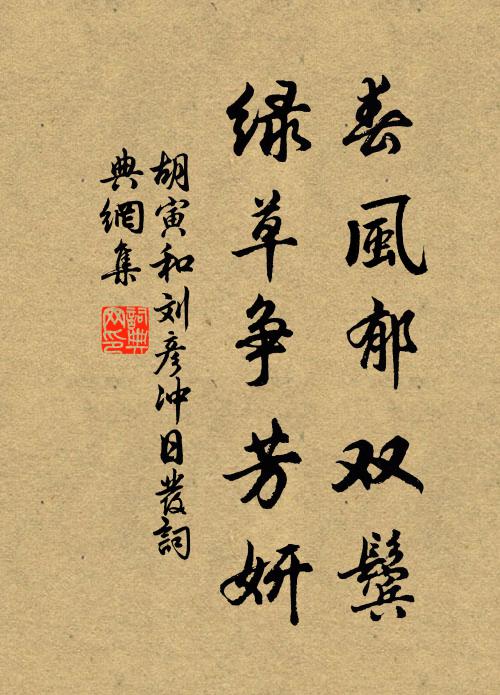 春風郁双鬓
绿草争芳妍
胡寅和刘彦冲日發詞
典網集
詞典
网印